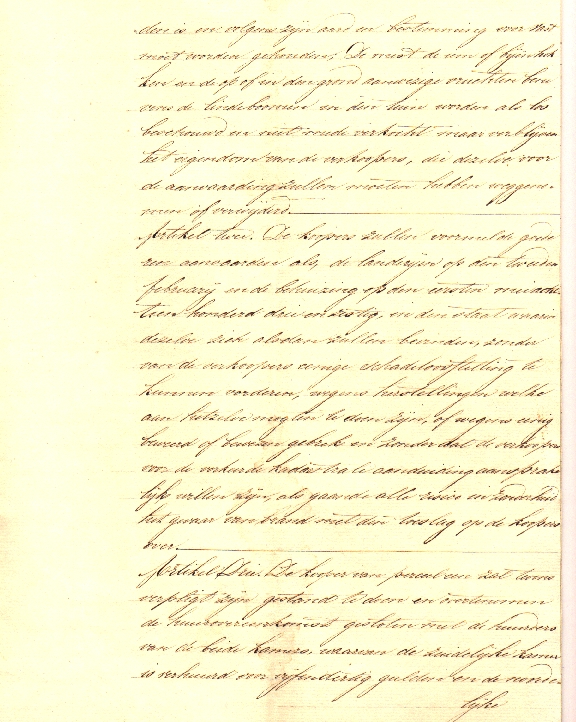 deur is en volgens zijn aard en bestemming voor vast
moet worden gehouden; De mest de
en de op of in den grond aanwezige vruchten bene
vens de lindeboomen en den tuin worden als los
beschouwd en niet mede verkocht maar verblijven
het eigendom van de verkoopers, die dezelve voor
de aanvaarding zullen moeten hebben weggeno-
men of verwijderd.
Artikel twee. De koopers zullen voormelde goede
ren aanvaarden als, de landerijen op den tweeden
februarij en de behuizing op den eersten mei acht
tien honderd drie en zestig, in den staat waarin
dezelve zich alsdan zullen bevinden, zonder
van de verkoopers eenige schadeloosstelling te
kunnen vorderen, wegens herstellingen welke
aan hetzelve mogten te doen zijn, of wegens eenig
beweerd of bewezen gebrek en zonder dat de verkoopers
voor de verkeerde kadastrale aanduiding aansprake
lijk willen zijn, als gaande alle risico en
het gevaar van brand met den toeslag op de koopers
over.
Artikel Drie. De kooper van perceel een zal tevens
verpligt zijn gestand te doen en overtenemen
de huurovereenkomst gesloten met de huurders
van de beide kamers, waarvan de zuidelijke kamer
is verhuurd voor vijfendertig gulden en de noorde
lijke